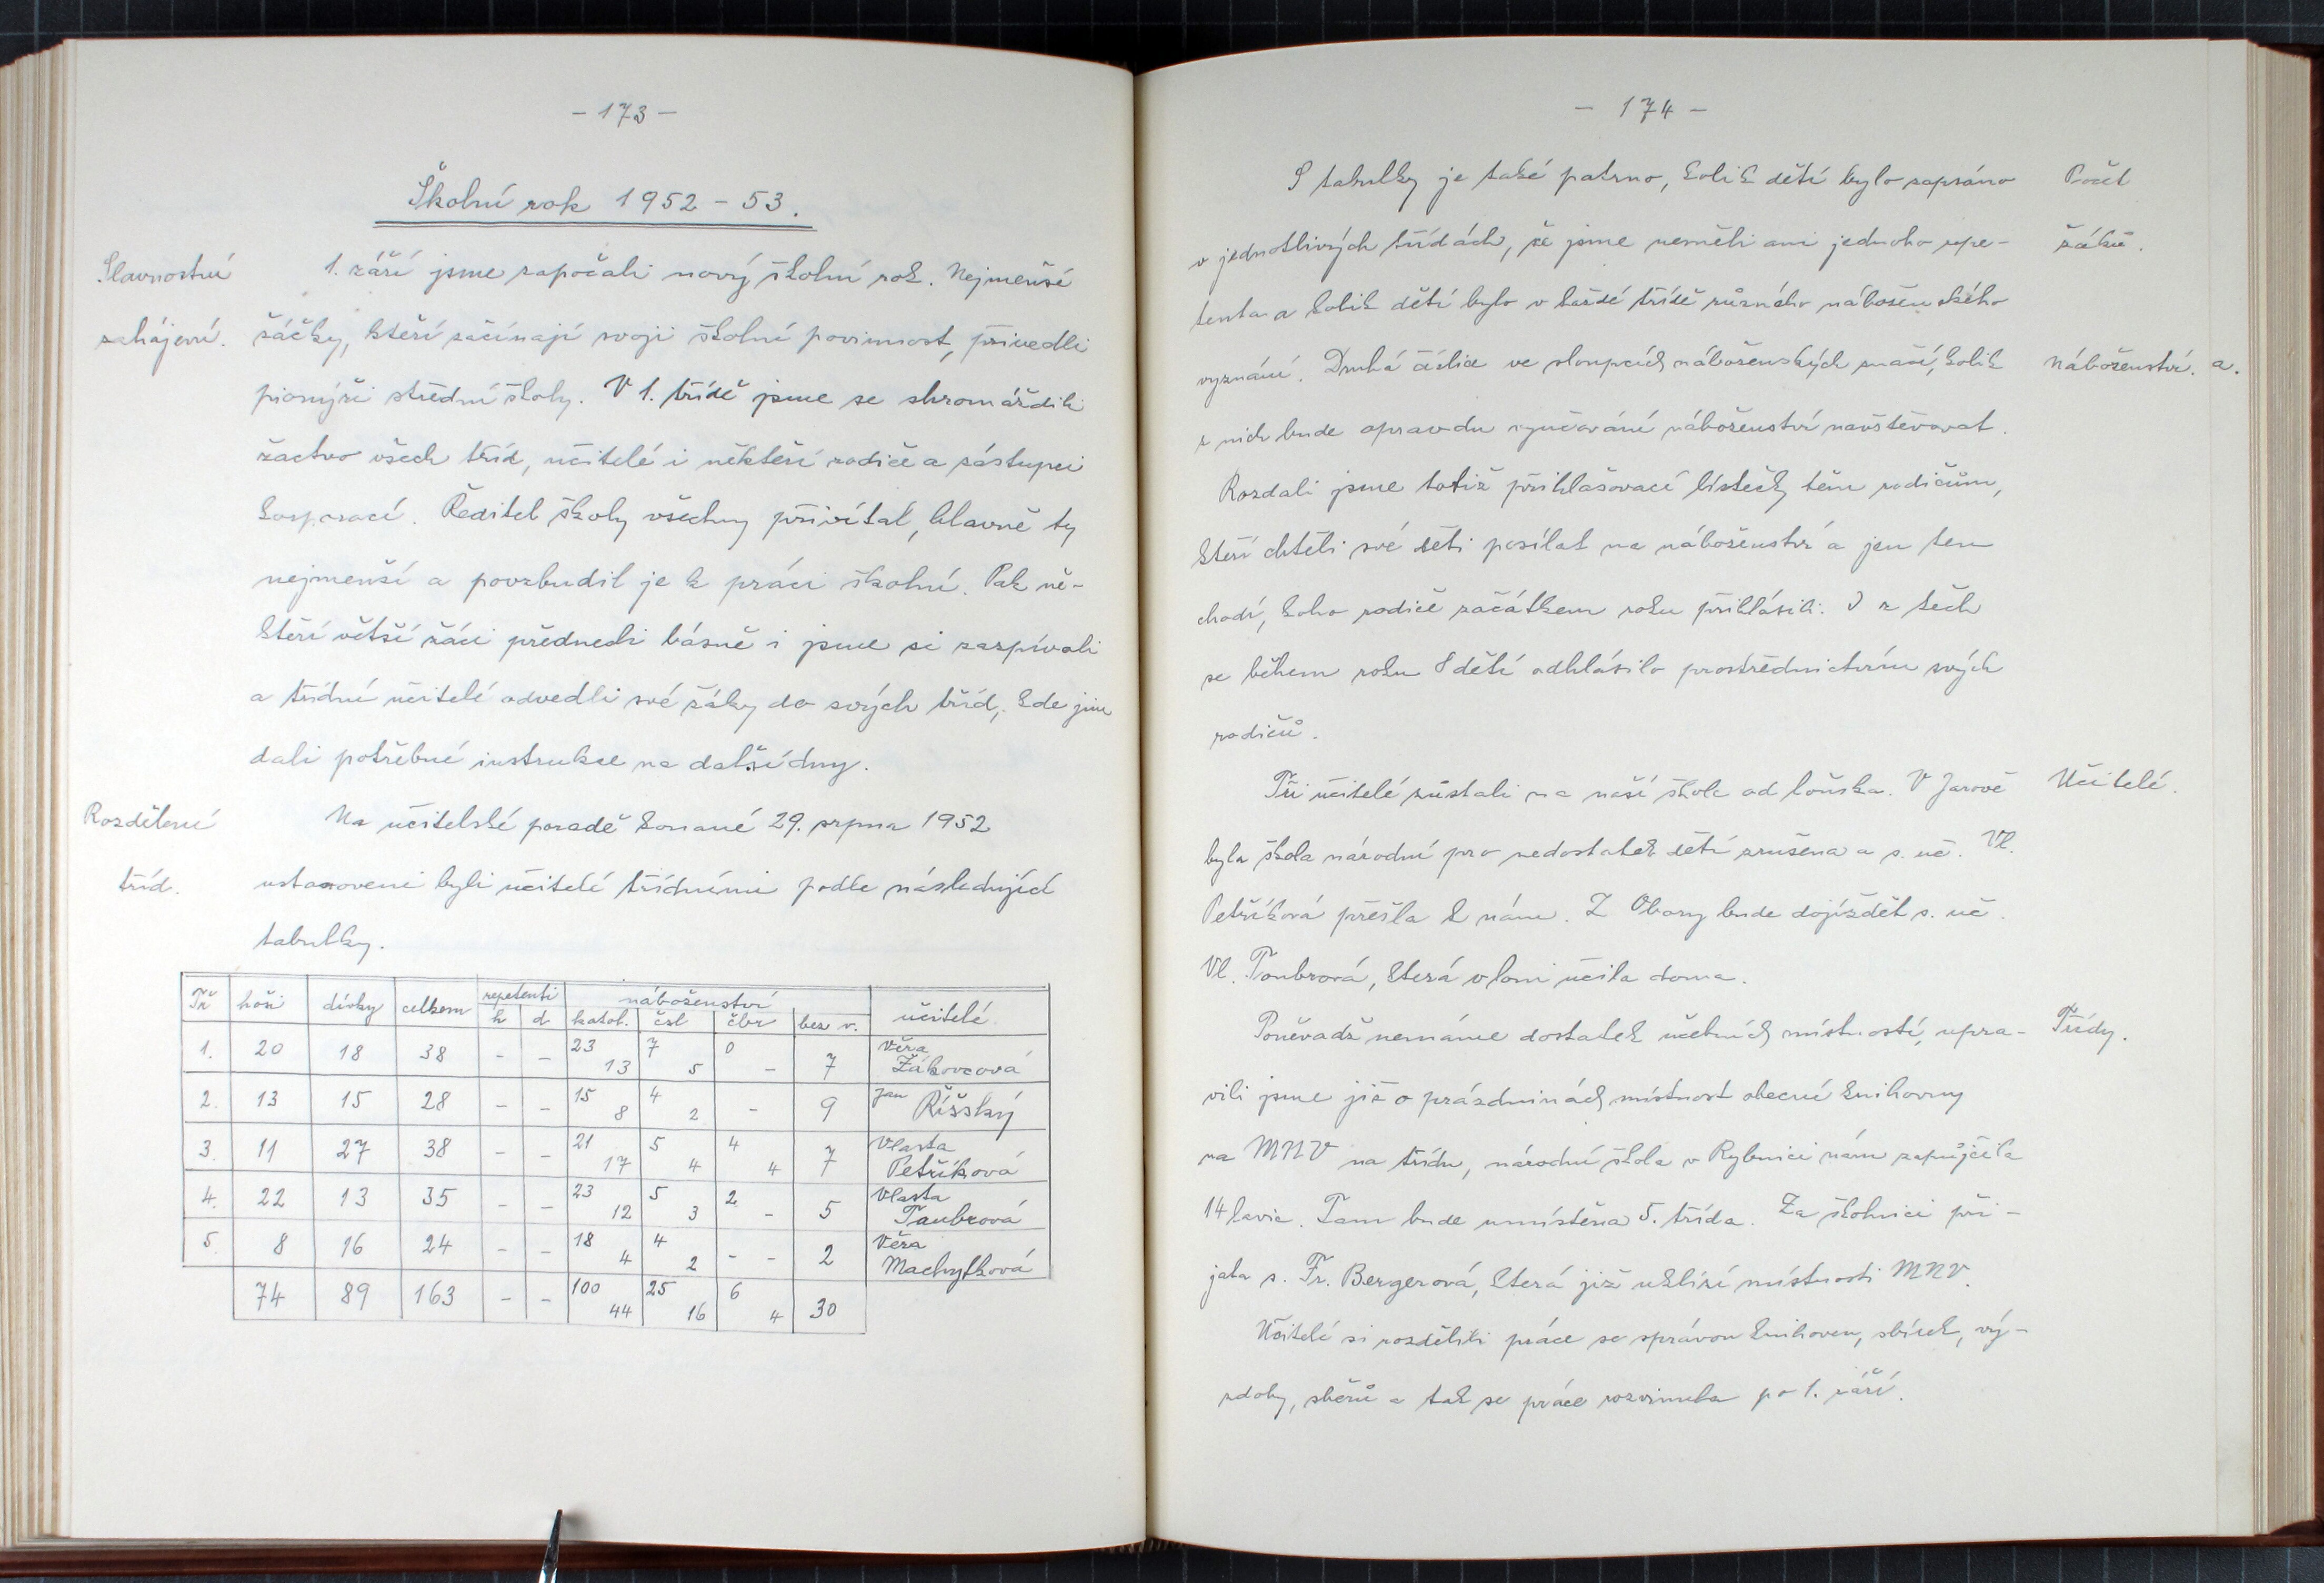 - 173 -
Školní rok 1952 - 53.
Slavnostní
zahájení.
1. září jsme započali nový školní rok. Nejmenší
žáčky, kteří začínají svoji školní povinnost, přivedli
pionýři střední školy. V 1. třídě jsme se shromáždili
žactvo všech tříd, učitelé i někteří rodiče a zástupci
korporací. Ředitel školy všechny přivítal, hlavně ty
nejmenší a povzbudil je k práci školní. Pak ně-
kteří větší žáci přednesli básně i jsme si zazpívali
a třídní učitelé odvedli své žáky do svých tříd, kde jim
dali potřebné instrukce na další dny.
Rozdělení
tříd.
Na učitelské poradě konané 29. srpna 1952
ustanoveni byli učitelé třídními podle následující
tabulky.
Tř hoši dívky celkem repetenti náboženství učitelé
h d katol. čsl čbr bez v.
1. 20 18 38 - - 23 13 7 5 0 - 7 Věra Žákovcová
2. 13 15 28 - - 15 8 4 2 - 9 Jan Říšský
3. 11 27 38 - - 21 17 5 4 4 4 7 Vlasta Petříková
4. 22 13 35 - - 23 12 5 3 2 - 5 Vlasta Taubrová
5. 8 16 24 - - 18 4 4 2 - - 2 Věra Machytková
74 89 163 - - 100 44 25 16 6 4 30
- 174 -
S tabulky je také patrno, kolik dětí bylo zapsáno
v jednotlivých třídách, že jsme neměli ani jednoho repe-
tenta a kolik dětí bylo v každé třídě různého náboženského
vyznání. Druhá číslice ve sloupcích náboženských značí, kolik
z nich bude opravdu vyučování náboženství navštěvovat.
Rozdali jsme totiž přihlašovací lístečky těm rodičům,
kteří chtěli své děti posílat na náboženství a jen ten
chodí, koho rodiče začátkem roku přihlásili. I z těch
se během roku 8 dětí odhlásilo prostřednictvím svých
rodičů.
Počet
žáků.
Náboženství. a.
Tři učitelé zůstali na naší škole od loňska. V Jarově
byla škola národní pro nedostatek dětí zrušena a s. uč. Vl.
Petříková přešla k nám. Z Obory bude dojíždět s. uč.
Vl. Toubrová, která vloni učila doma.
Učitelé.
Poněvadž nemáme dostatek učebních místností, upra-
vili jsme již o prázdninách místnost obecní knihovny
na MNV na třídu, národní škola v Rybnici nám zapůjčila
14 lavic. Tam bude umístěna 5. třída. Za školnici při-
jata s. Fr. Bergerová, která již uklízí místnosti MNV.
Třídy.
Učitelé si rozdělili práce se správou knihoven, sbírek, vý-
zdoby, sběrů a tak se práce rozvinula po 1. září.